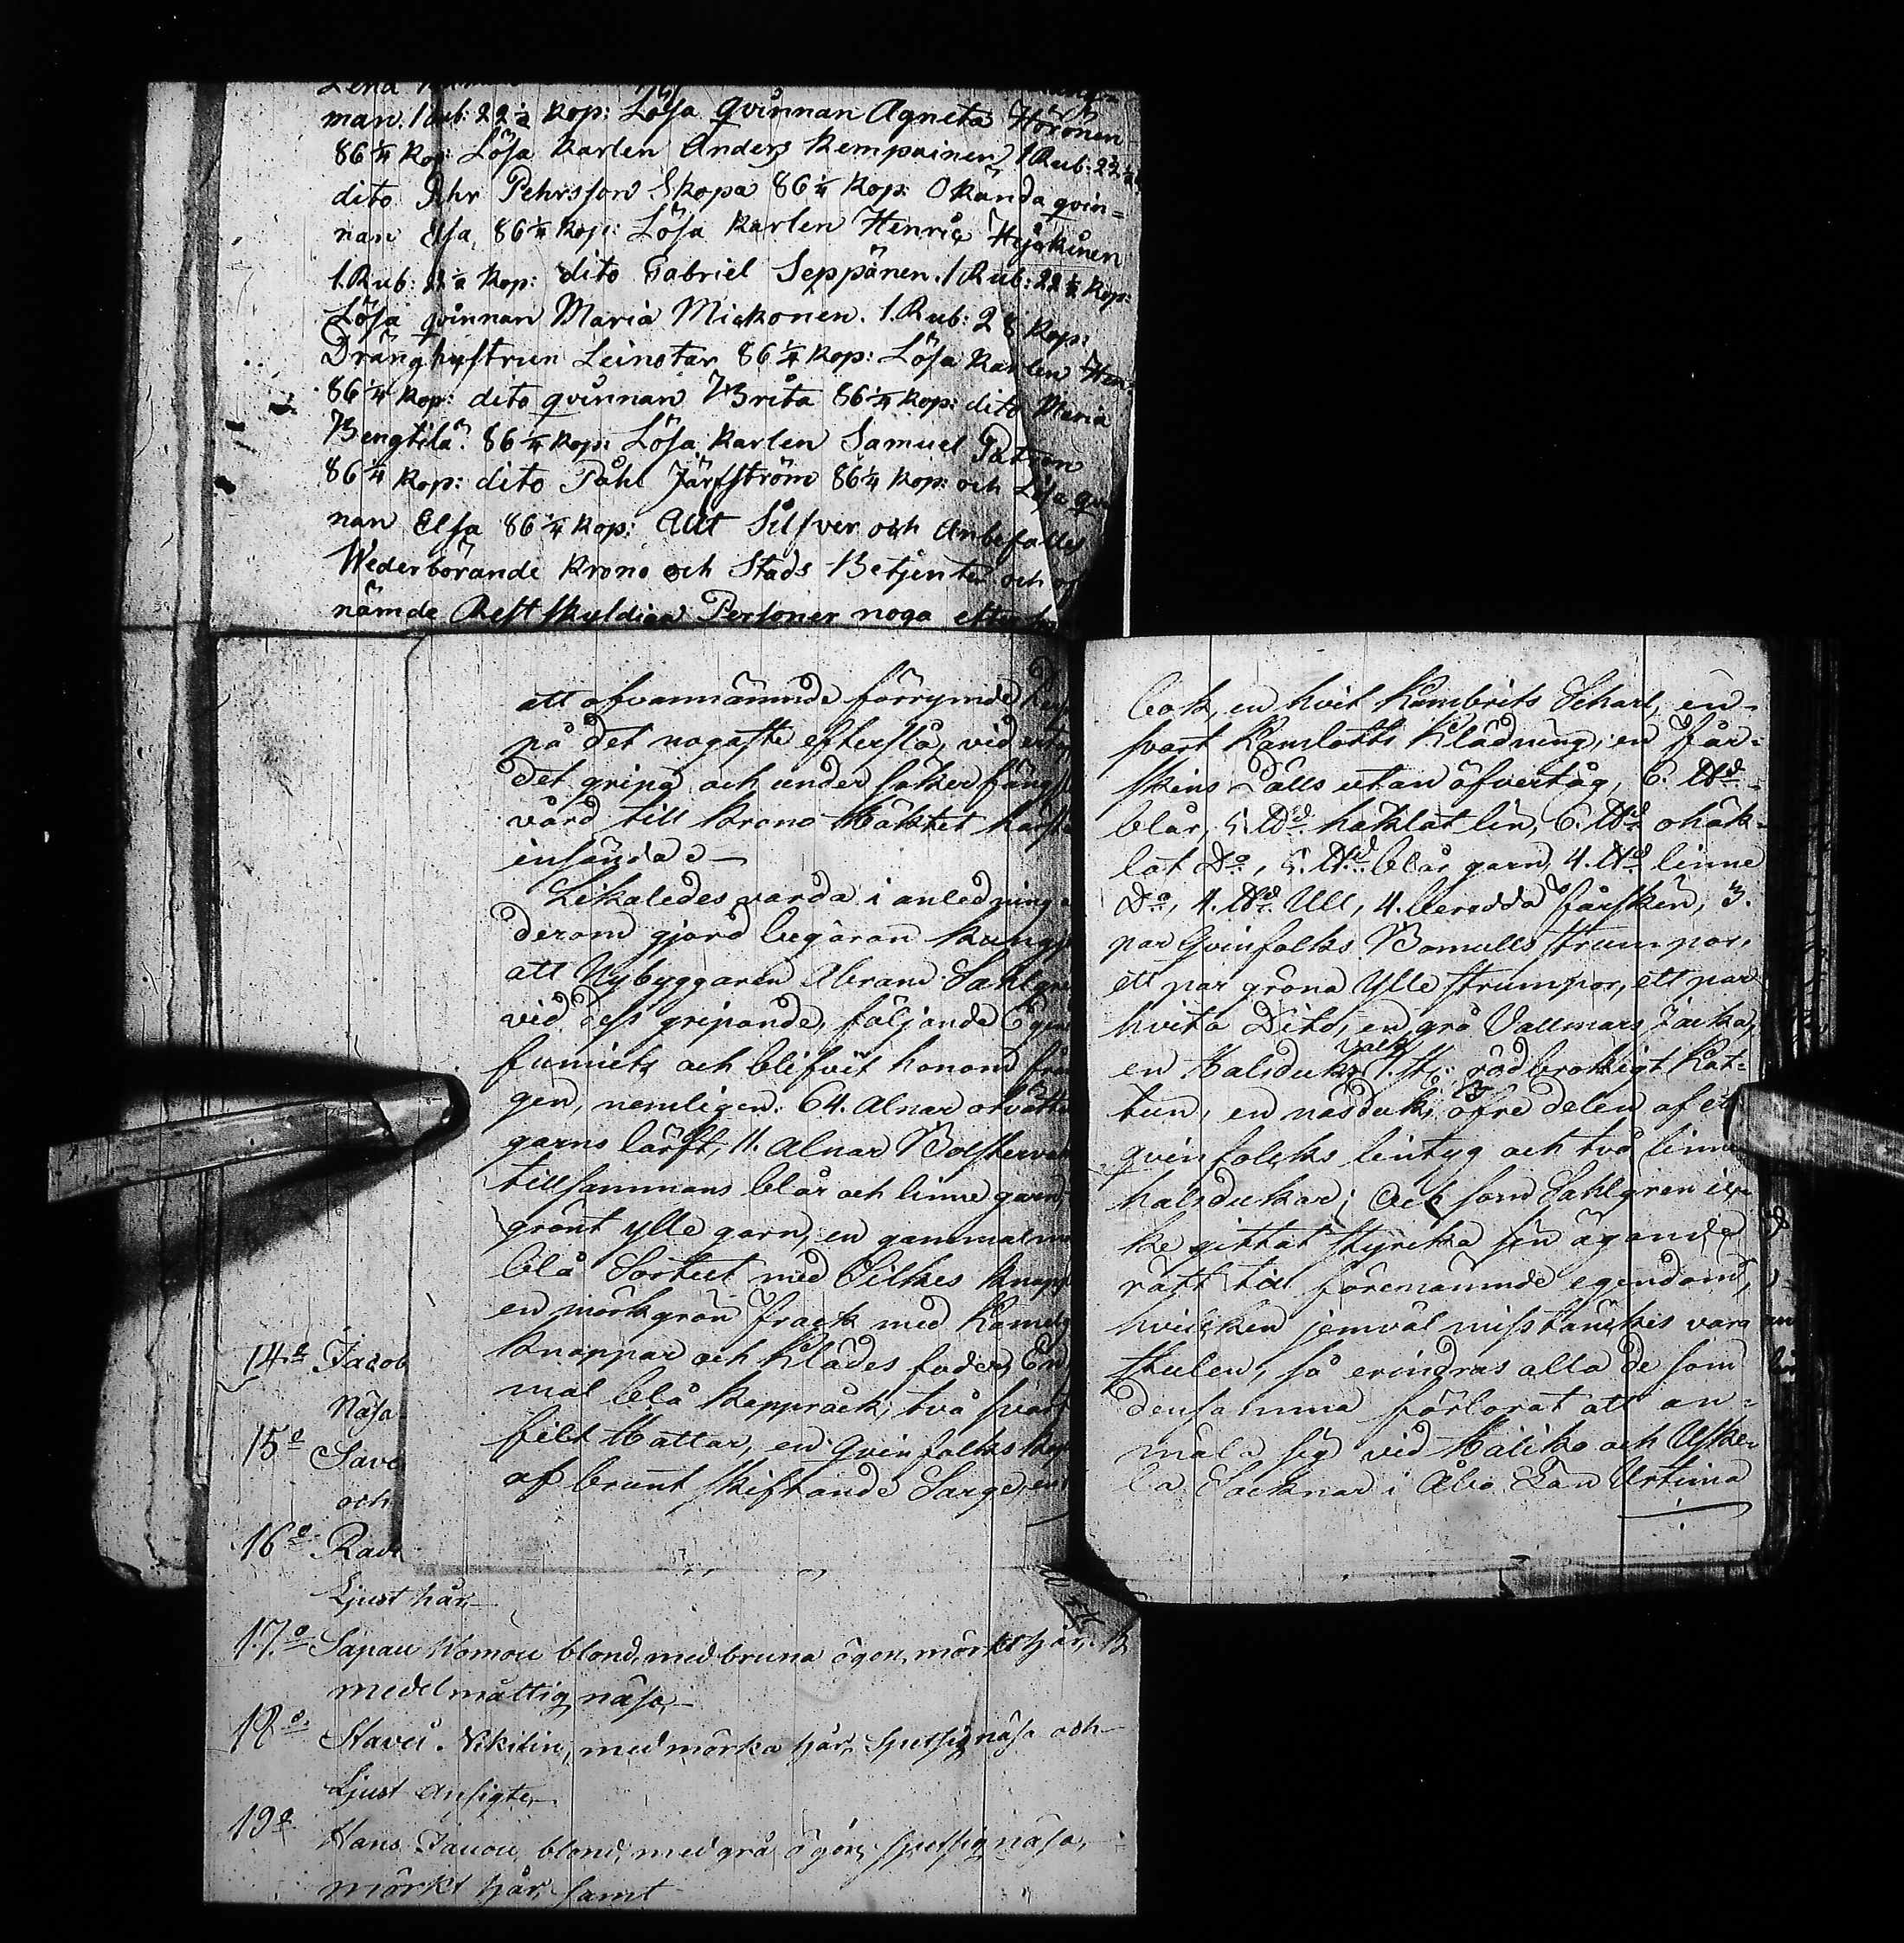 man. 1 Rub: 22½ kop: Lösa qvinnan Agneta Hörönen
86¼ kop: Lösa Karlen Anders Kempainen 1 Rub: 22½
dito Pehr Pehrsson Skopa 86¼ kop: Okända qvin=
nan Elsa, 86¼ kop: Lösa Karlen Henric
1. Rub: 22½ kop: dito Gabriel Seppänen. 1 Rub: 22½ kop:
Lösa qvinnan Maria Mickonen. 1. Rub: 28 kop:
Dränghustrun Leinotar 86¼ kop: Lösa Karlen Hen
86¼ kop: dito qvinnan Brita 86¼ kop: dito Maria
Bengtilä. 86¼ kop: Lösa Karlen Samuel
86¼ kop: dito Påhl Järfström 86¼ kop: och Lösa qvi
nan Elsa 86¼ kop: Allt Silfver och Anbefalles
Wederbörande Krono och Stads Betjente och
nämde Restskuldiga Personer noga efter
att ofvannämnde förrymde
på det nogaste efterslå, vid
det gripa och under säker fång
vård till Krono Häktet härst
insända.—
Likaledes varda i anledning
derom gjord begäran kungj
att Nybyggaren Abram Sahlgre
vid dess gripande, följande Egen
funnits och blifvit honom från
gen, nemligen: 64. Alnar otvätt
garns lärft, 11. Alnar Bolsterva
tillsammans blår och linne garn,
grönt ylle garn, en gammal
blå Sortut med Silkes knapp
en mörkgrön frack med Kamel
knappar och Klädes foder, En
mal blå kapprock, två svar
filt Hattar, en qvinfolks
af brunt skiftande Sarge, en
bok, en hvit Kambrits Scharl, en
svart Kamlotts Klädning, en Får=
skins Pälls utan öfvertåg, 6. ℔
blår, 5. ℔ häklat lin, 6. ℔ ohäk=
lat Do, 5. ℔ blår garn, 4. ℔ linne
Do, 4. ℔ Ull, 4. beredda fårskin, 3.
par Qvinfolks Bomulls strumpor,
ett par gröna Ylle strumpor, ett par
hvita Dito, en grå Vallmars Jacka,
en Halsduk, 1. st: rödbrokkigt Kat=
tun, en näsduk, öfre delen af ett
qvinfolcks lintyg och två linne
halsdukar; Och som Sahlgren ic
ke gittat styrcka sin ägande
rätt till förenämnde egendom,
hvilcken jemväl misstänckes vara
stulen, så erindras alla de som
densamma förlorat att an=
mäla sig vid Haliko och Uske
la Socknar i Åbo Län Urtima
14o Jacob
Näsa
15o Save
och
16o
Ljust hår,—
17.o Sapau Womou blond, med bruna ögon, mörkt hår,
medelmåttig näsa,—
18o Stavei Nikitin, med mörka hår, spetsig näsa och
Ljust Ansigte,—
19o Hans Jauou, blond, med grå ögon, spetsig näsa,
mörkt hår, samt